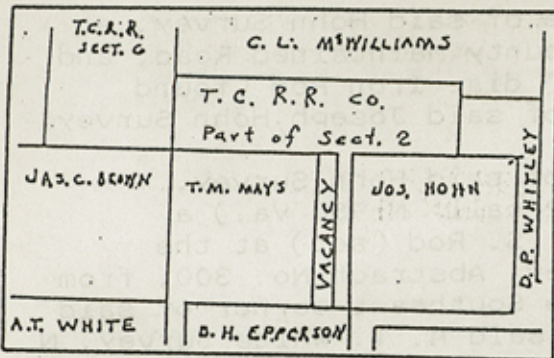 T.C.R.R.
SECT. 6
C. L. McWILLIAMS
T. C. R. R. CO.
Part of Sect. 2
JAS. C. BROWN
T.M. MAYS
VACANCY
JOS. HOHN
D.P. WHITLEY
A.T. WHITE
D. H. EPPERSON